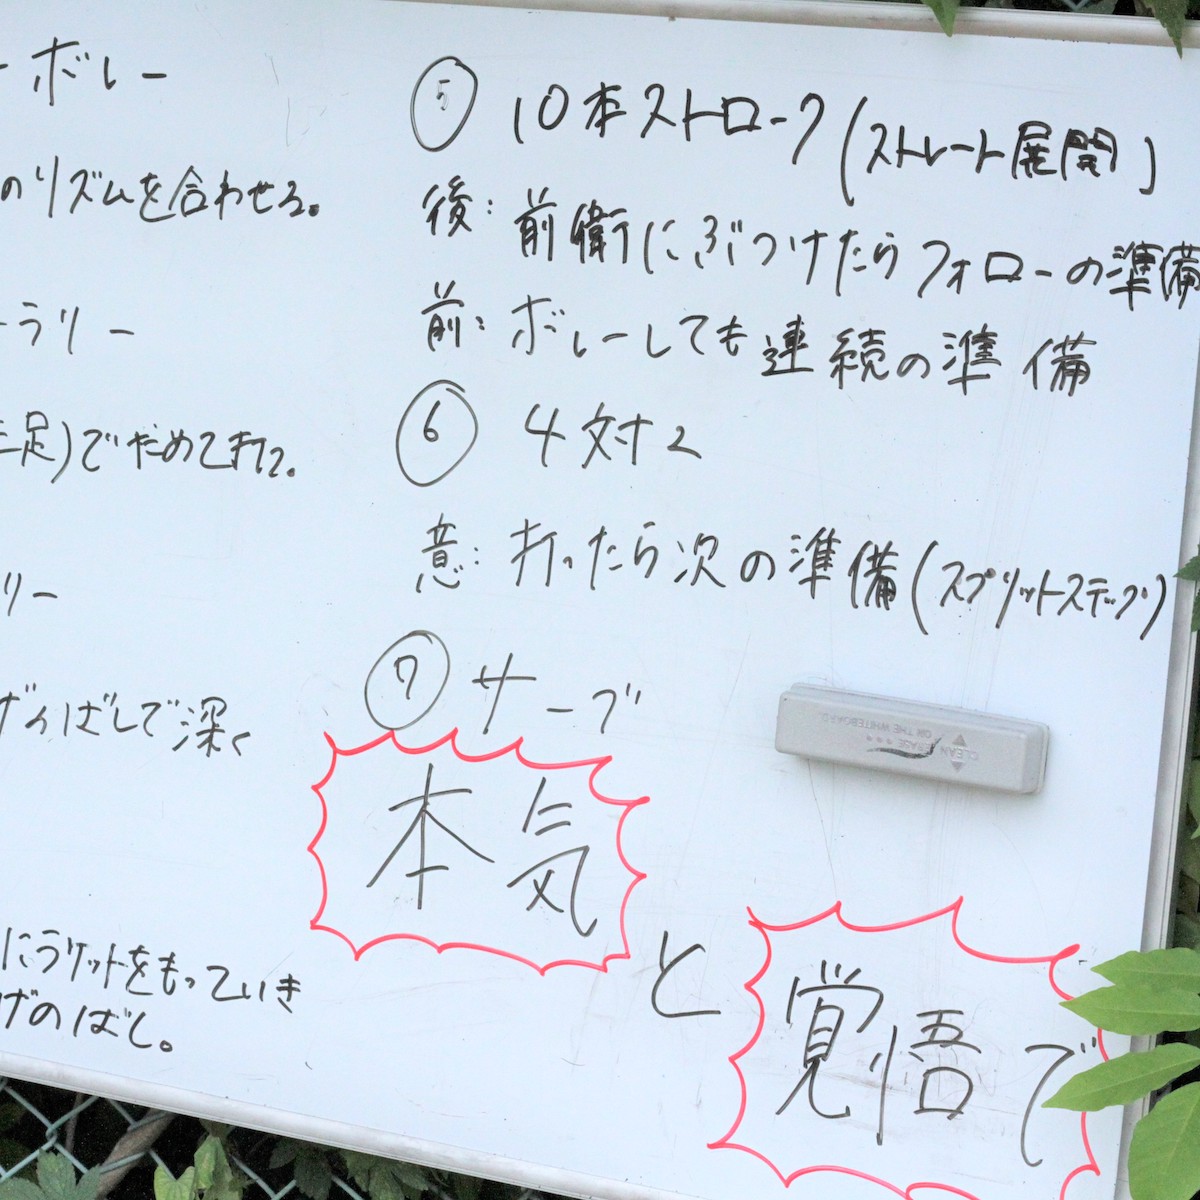 ーボレー
のリズムを合わせろ。
ーラリー
足)でだめてきた。
リー
ばしで深く
にラケットをもっていき
げのばし。
⑤ 10本ストローク(ストレート展開)
後:前衛にぶつけたらフォローの準備
前:ボレーしても連続の準備
⑥ 4対2
意:打ったら次の準備(スプリットステップ)
⑦ サーブ
CLEAN ERASE
ON THE WHITEBOARD
本気
と
覚悟で